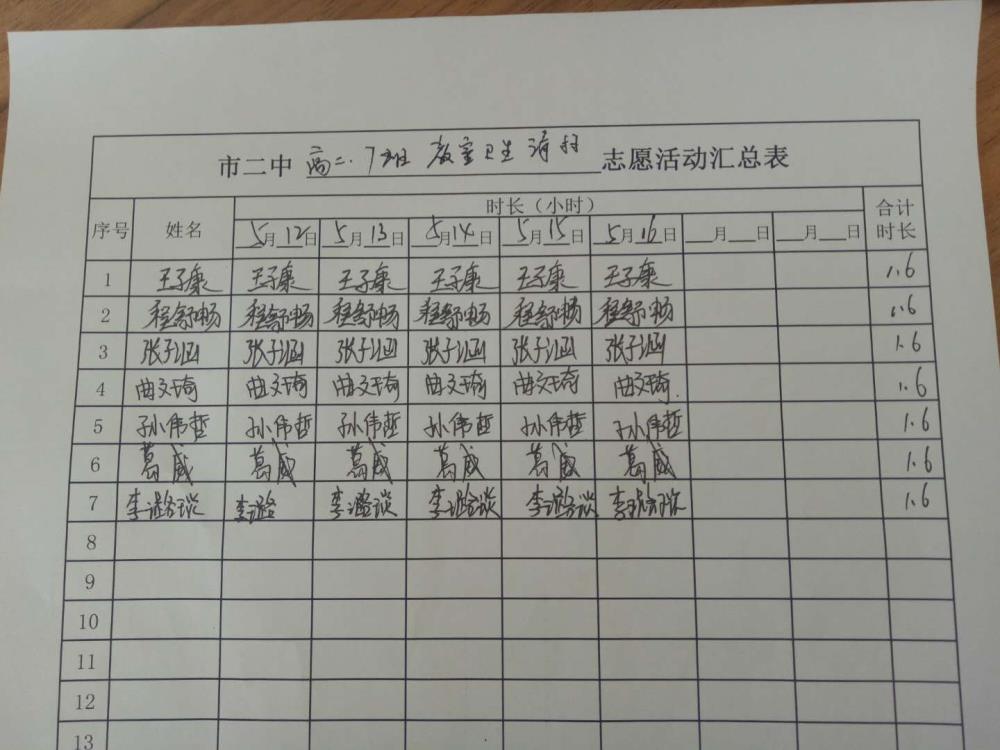 市二中 高二.7班 教室卫生清扫 志愿活动汇总表
序号 姓名 时长（小时） 合计时长
5月12日 5月13日 5月14日 5月15日 5月16日 月 日 月 日
1 王子康 王子康 王子康 王子康 王子康 王子康 1.6
2 程舒畅 程舒畅 程舒畅 程舒畅 程舒畅 程舒畅 1.6
3 张子涵 张子涵 张子涵 张子涵 张子涵 张子涵 1.6
4 曲文琦 曲文琦 曲文琦 曲文琦 曲文琦 曲文琦 1.6
5 孙伟哲 孙伟哲 孙伟哲 孙伟哲 孙伟哲 孙伟哲 1.6
6 葛威 葛威 葛威 葛威 葛威 葛威 1.6
7 1.6
8
9
10
11
12
13